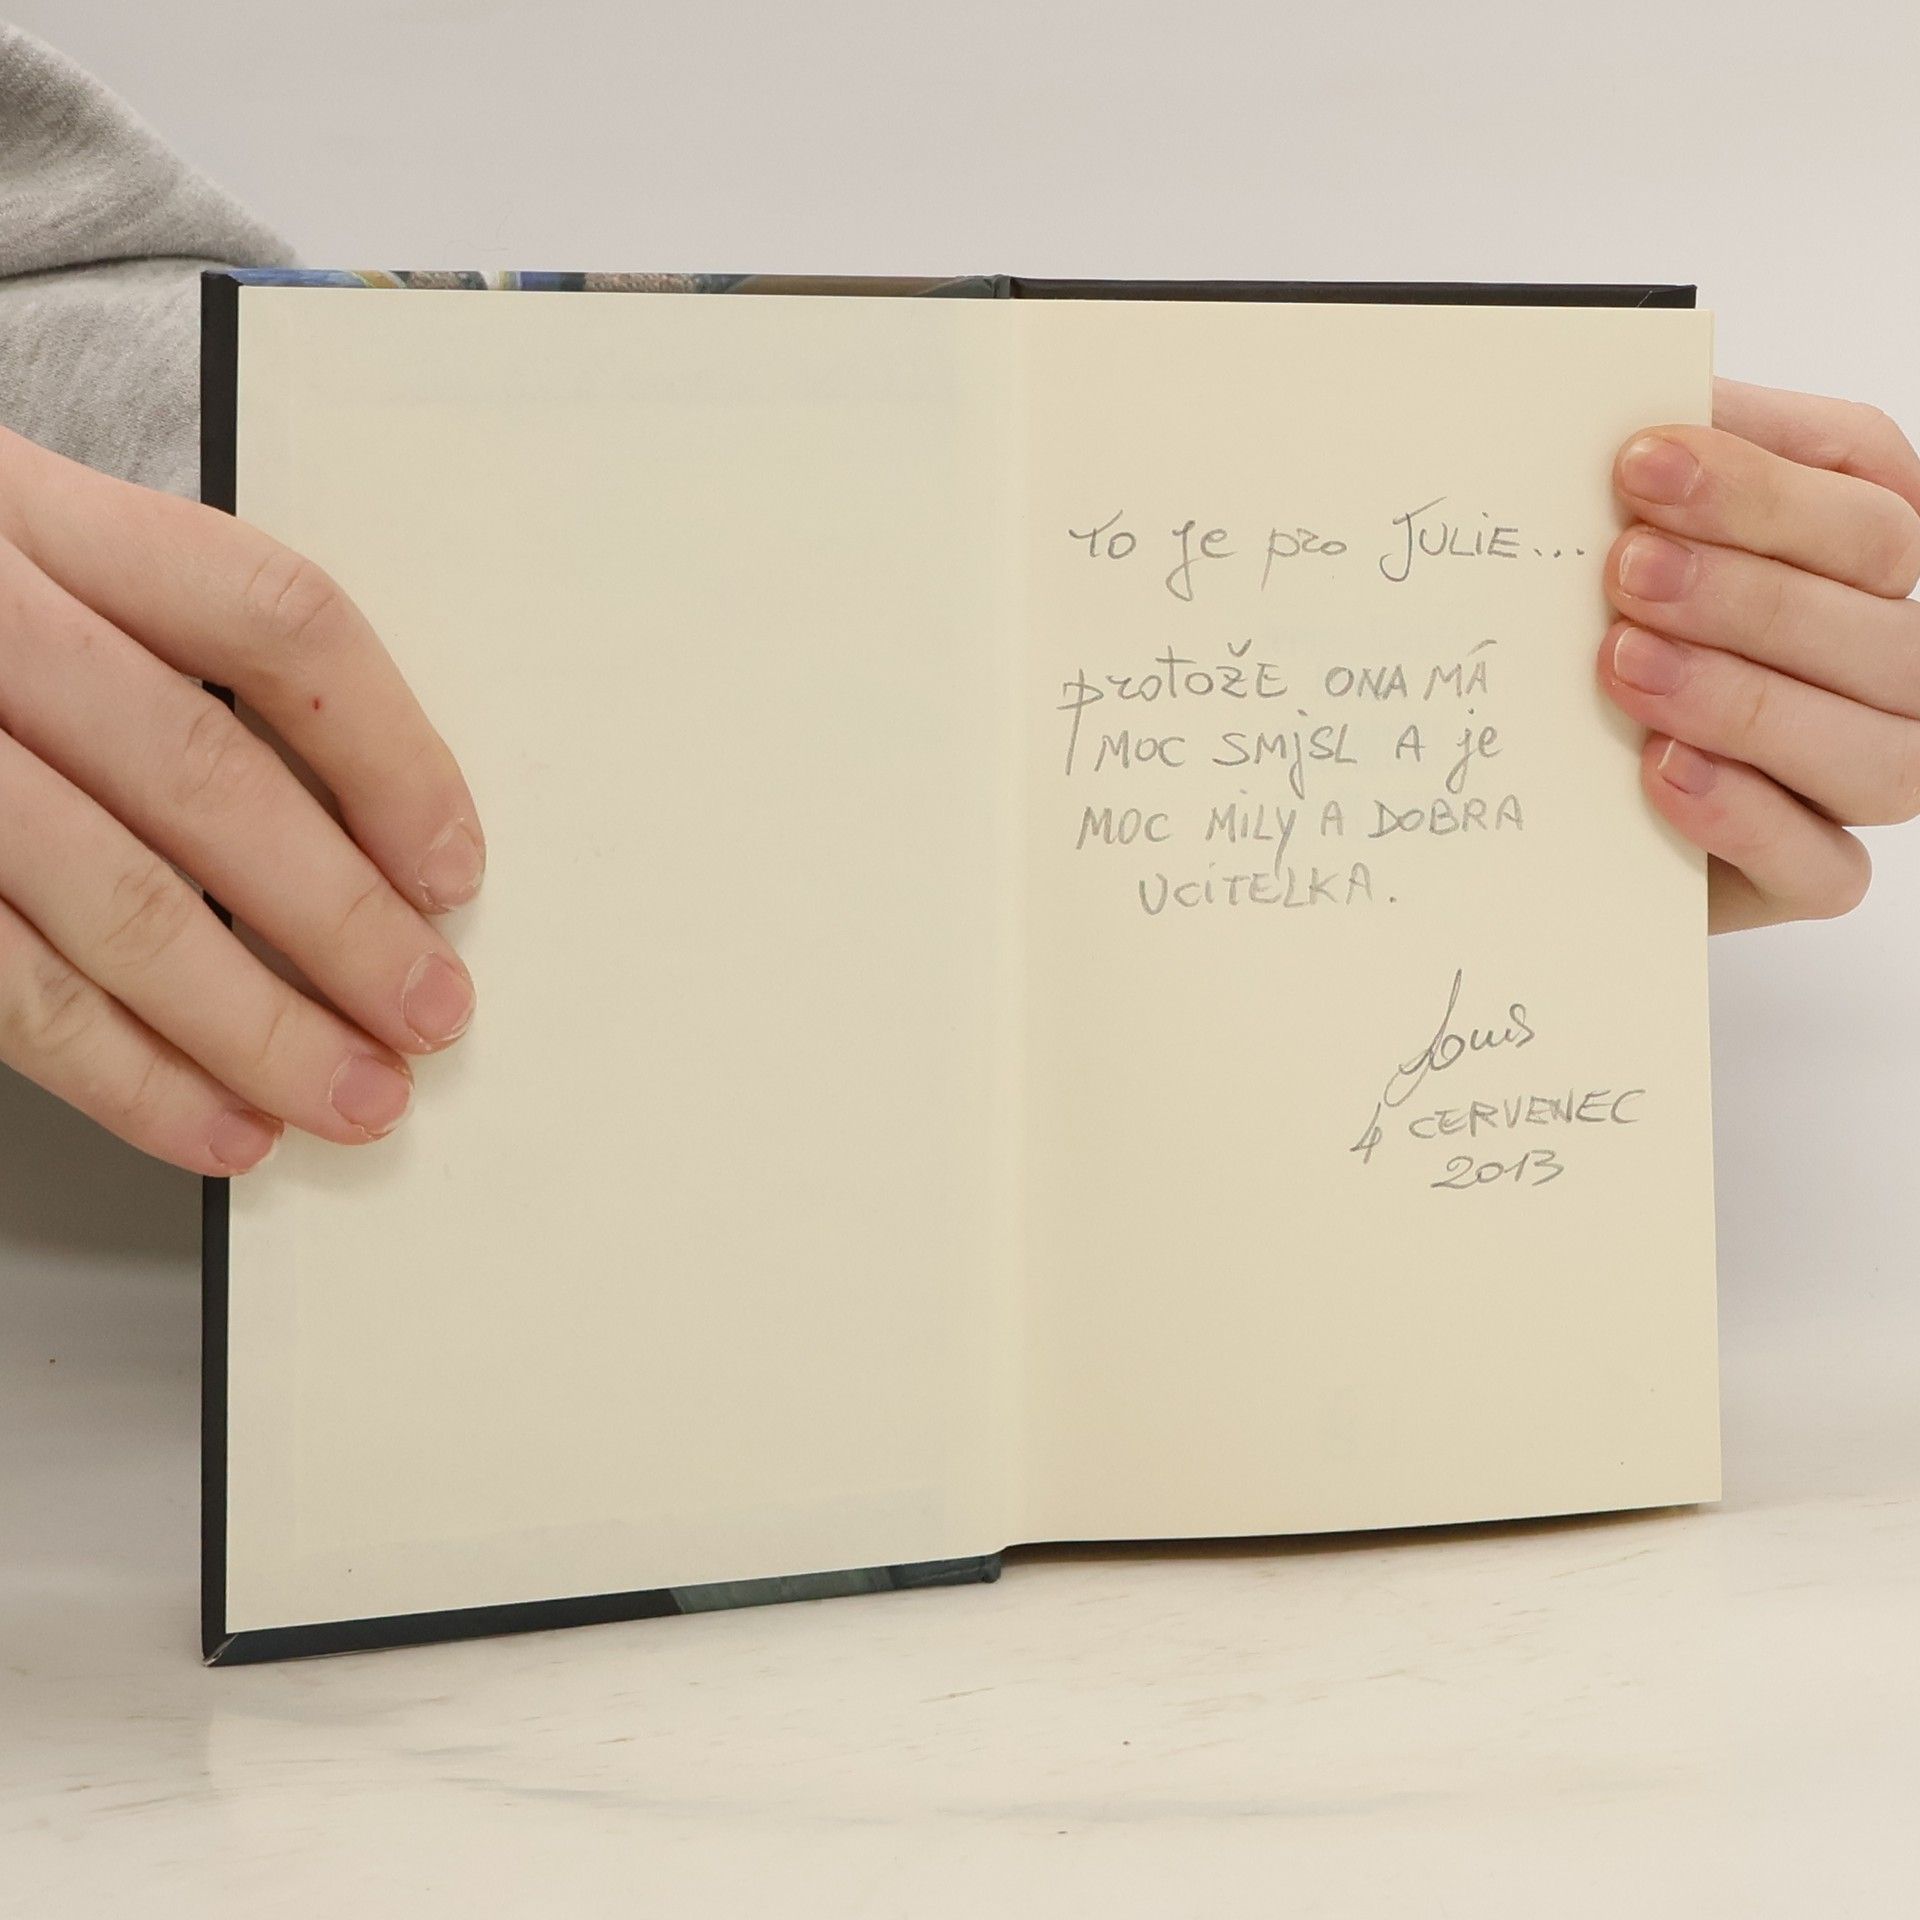 To je pro JULIE...
protožE ONA MÁ
MOC SMjSL A je
MOC MiLY A DOBRA
UCiTELKA.
Louis
4 CERVENEC
2013